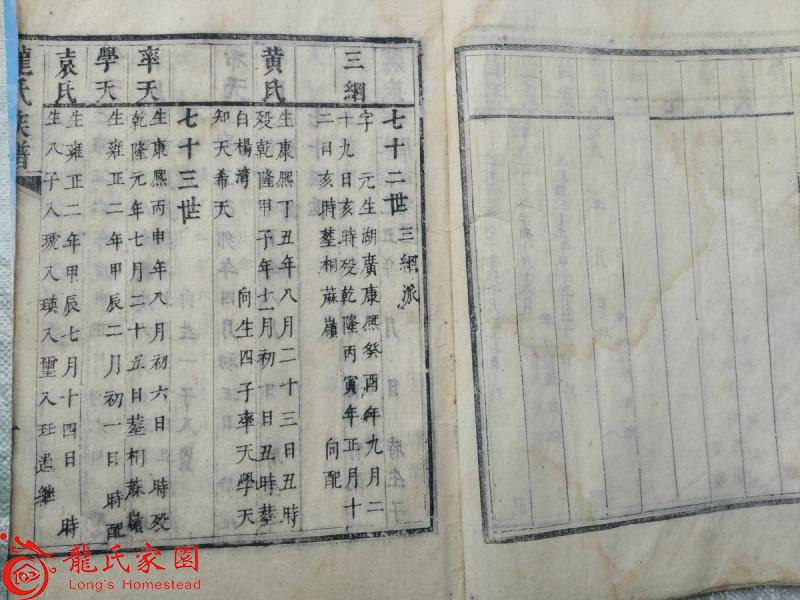 七十二世 三綱派
三綱
字 元生湖廣康熙癸酉年九月二
十九日亥時殁乾隆丙寅年正月十
二日亥時塟相蔴嶺 向配
黄氏
生康熙丁丑年八月二十三日丑時
殁乾隆甲子年十二月初十日丑時塟
白楊湾 向生四子率天學天
知天希天
七十三世
率天
生康熙丙申年八月初六日 時殁
乾隆元年七月二十五日塟相蔴嶺
學天
生雍正二年甲辰二月初一日 時配
袁氏
生雍正二年甲辰七月十四日 時
生八子入琥入瑛入璽入珏
龍氏族譜
龍氏家園
Long's Homestead